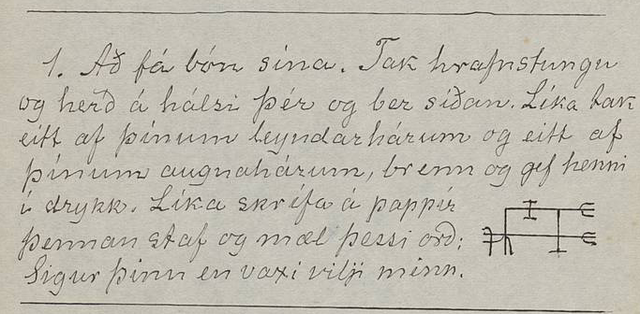 1. Að fá bón sína. Tak hrafnstungu
og herð á hálsi þér og ber síðan. Líka tak
eitt af þínum leyndarhárum og eitt af
þínum augnahárum, brenn og gef henni
í drykk. Líka skrífa á pappír
þennan staf og mæl þessi orð:
Sigur þinn en vaxi vilji minn.